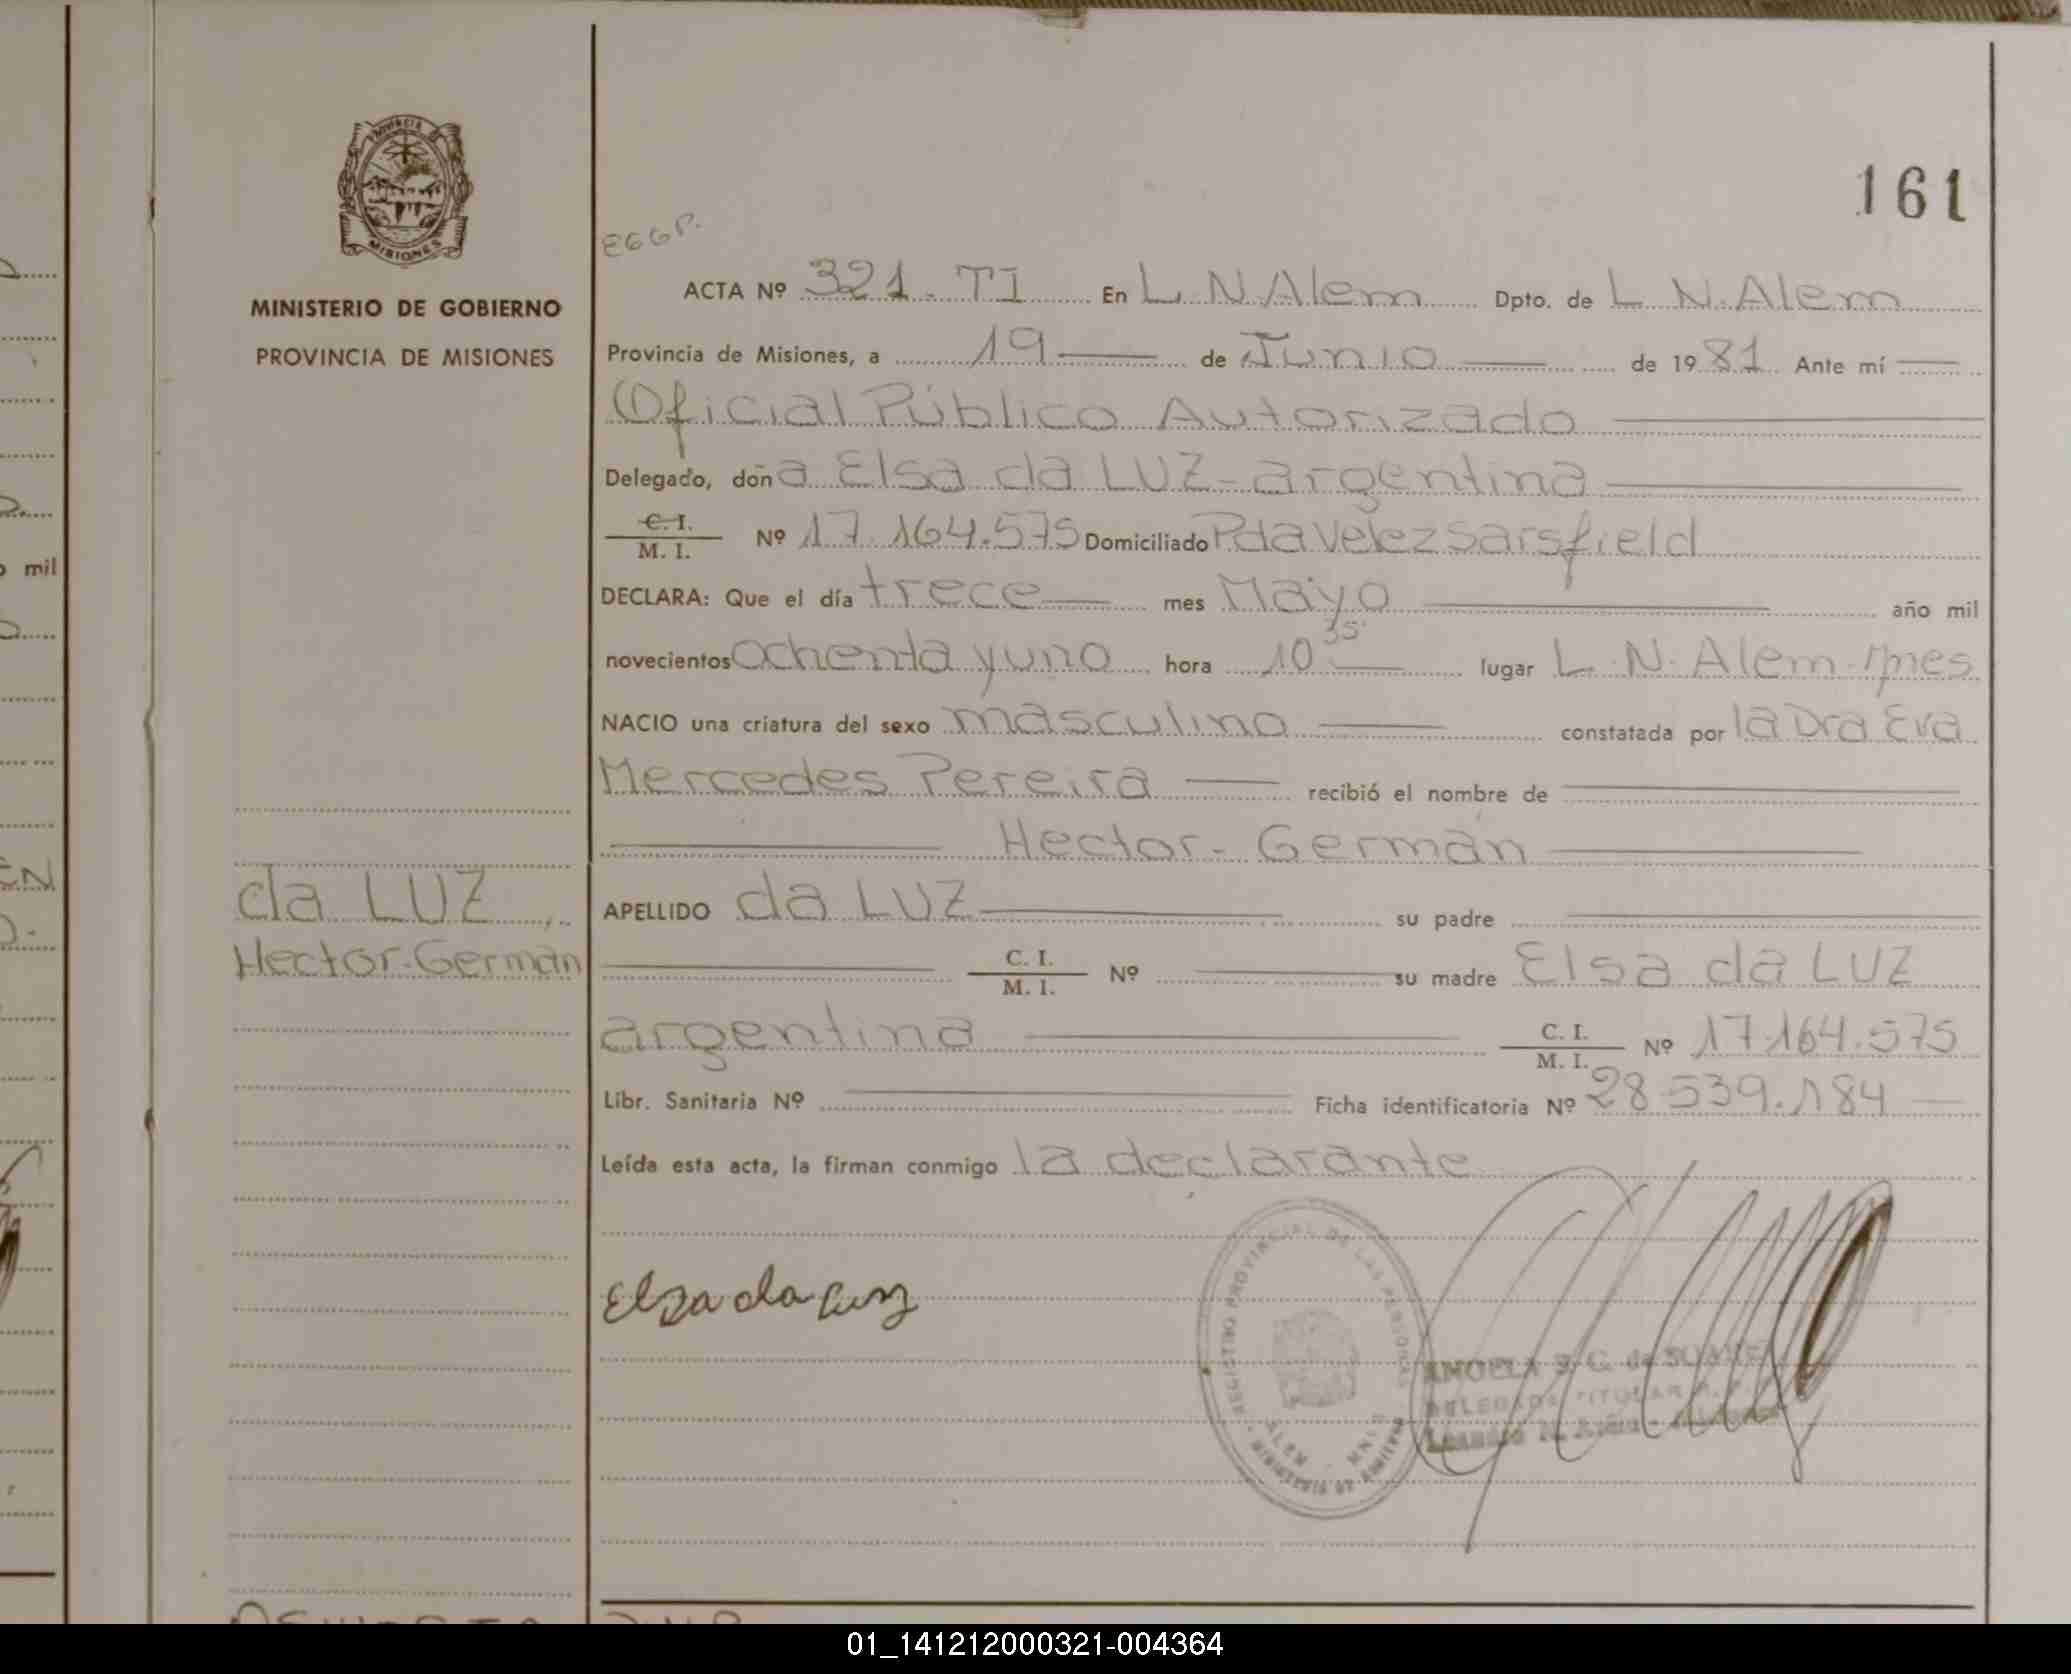 161
EGGP.
PROVINCIA DE
MISIONES
MINISTERIO DE GOBIERNO
PROVINCIA DE MISIONES
ACTA Nº 321. TI En L. N. Alem Dpto. de L. N. Alem
Provincia de Misiones, a 19 de Junio de 1981 Ante mí
Oficial Público Autorizado
Delegado, doña Elsa da LUZ - argentina
C. I. / M. I. Nº 17.164.575 Domiciliado Pda Velez Sarsfield
DECLARA: Que el día trece mes Mayo año mil
novecientos ochenta y uno hora 10 35 lugar L. N. Alem. Mnes
NACIO una criatura del sexo masculino constatada por la Dra Eva
Mercedes Pereira recibió el nombre de
Hector - Germán
da LUZ
Hector - Germán
APELLIDO da LUZ su padre
C. I. / M. I. Nº su madre Elsa da LUZ
argentina C. I. / M. I. Nº 17.164.575
Libr. Sanitaria Nº Ficha identificatoria Nº 28.539.184
Leída esta acta, la firman conmigo la declarante
Elza da Luz
REGISTRO PROVINCIAL DE LAS PERSONAS
ALEM MNES
MINISTERIO DE GOBIERNO
DELEGADA TITULAR
mil
01_141212000321-004364